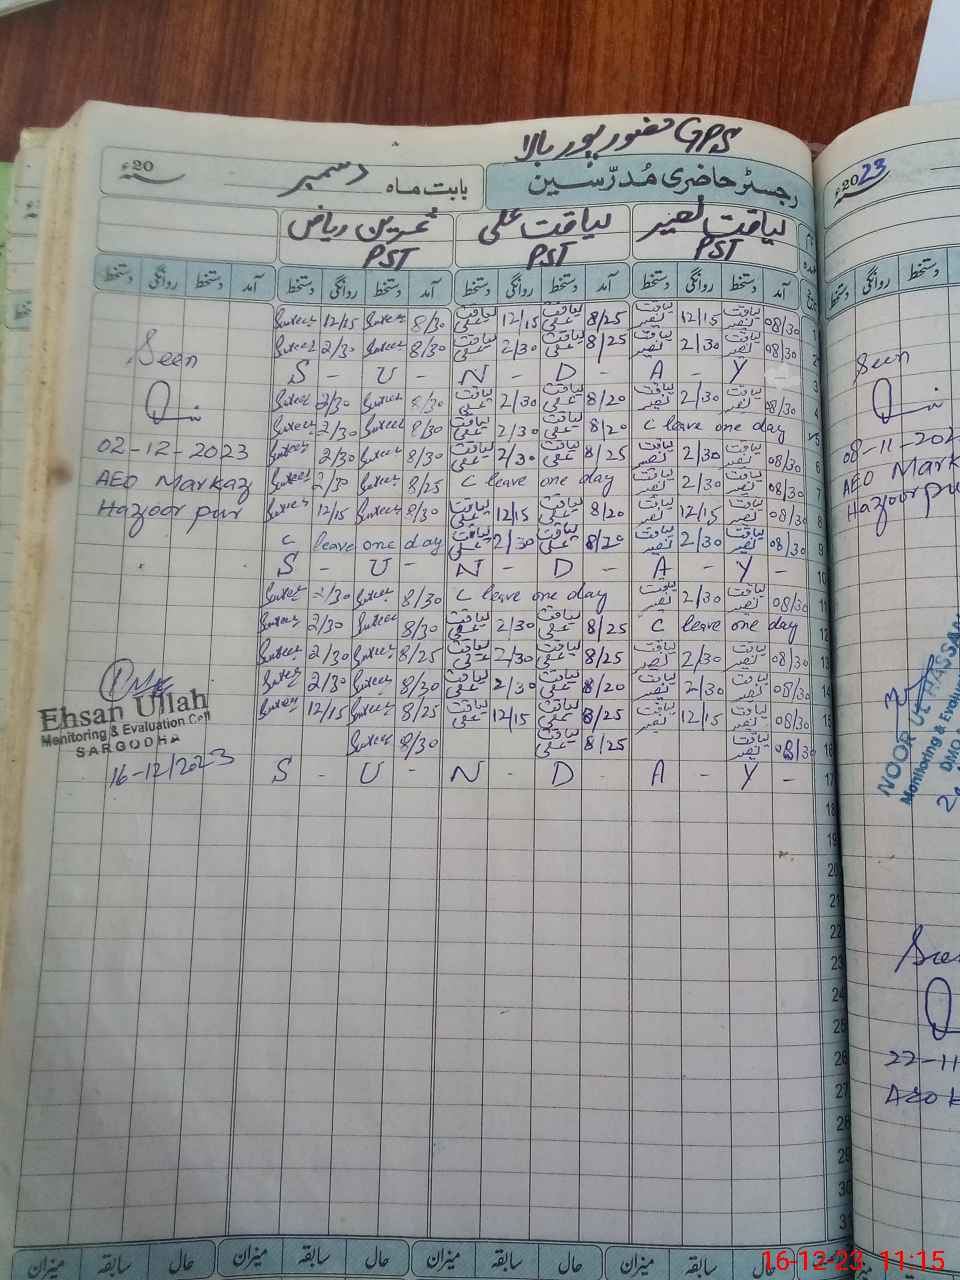 GPS حضور پور بالا
رجسٹر حاضری مُدرّسین بابت ماہ دسمبر 20ء
لیاقت نصیر لیاقت علی ثمرین ریاض
PST PST PST
آمد دستخط روانگی دستخط آمد دستخط روانگی دستخط آمد دستخط روانگی دستخط آمد دستخط روانگی دستخط
1 08/30 لیاقت نصیر 12/15 لیاقت نصیر 8/25 لیاقت علی 12/15 لیاقت علی 8/30 12/15
2 08/30 لیاقت نصیر 2/30 لیاقت نصیر 8/25 لیاقت علی 2/30 لیاقت علی 8/30 2/30
3 S - U - N - D - A - Y
4 08/30 لیاقت نصیر 2/30 لیاقت نصیر 8/20 لیاقت علی 2/30 لیاقت علی 8/30 2/30
5 C leave one day 8/20 لیاقت علی 2/30 لیاقت علی 8/30 2/30
6 08/30 لیاقت نصیر 2/30 لیاقت نصیر 8/25 لیاقت علی 2/30 لیاقت علی 8/30 2/30
7 08/30 لیاقت نصیر 2/30 لیاقت نصیر C leave one day 8/25 2/30
8 08/30 لیاقت نصیر 12/15 لیاقت نصیر 8/20 لیاقت علی 12/15 لیاقت علی 8/30 12/15
9 08/30 لیاقت نصیر 2/30 لیاقت نصیر 8/20 لیاقت علی 2/30 لیاقت علی C leave one day
10 S - U - N - D - A - Y -
11 08/30 لیاقت نصیر 2/30 لیاقت نصیر C leave one day 8/30 2/30
12 C leave one day 8/25 لیاقت علی 2/30 لیاقت علی 8/30 2/30
13 08/30 لیاقت نصیر 2/30 لیاقت نصیر 8/25 لیاقت علی 2/30 لیاقت علی 8/25 2/30
14 08/30 لیاقت نصیر 2/30 لیاقت نصیر 8/20 لیاقت علی 2/30 لیاقت علی 8/30 2/30
15 08/30 لیاقت نصیر 12/15 لیاقت نصیر 8/25 لیاقت علی 12/15 لیاقت علی 8/25 12/15
16 08/30 لیاقت نصیر 8/25 لیاقت علی 8/30
17 S - U - N - D - A - Y -
18
19
20
21
22
23
24
25
26
27
28
29
30
31
Seen
02-12-2023
AEO Markaz
Hazoor pur
Ehsan Ullah
Monitoring & Evaluation Cell
SARGODHA
16-12/2023
حال سابقہ میزان حال سابقہ میزان حال سابقہ میزان حال سابقہ میزان
2023ء
دستخط روانگی
Seen
08-11-202
AEO Mark
Hazoorpu
NOOR UL HASSAN
Monitoring & Evalua
DMO
22-11
AEO
16-12-23 11:15